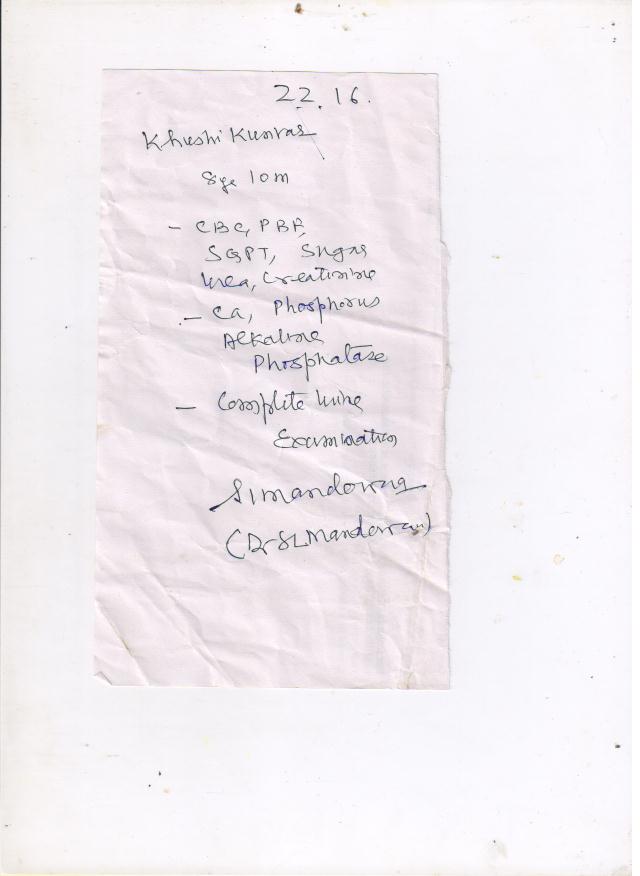 22.16.
Khushi Kumras
Age 10m
- CBC, PBF,
SGPT, Sugar
Urea, Creatinine
- Ca, Phosphorus
Alkaline
Phosphatase
- Complete Urine
Examination
(Dr SL Mandowra)